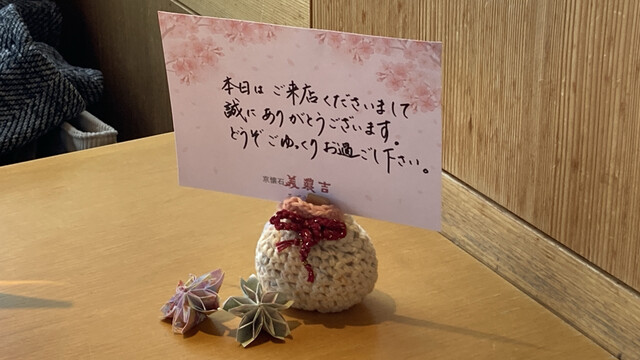 本日は ご来店くださいまして
誠に ありがとうございます。
どうぞ ごゆっくり お過ごし下さい。
京懐石 美濃吉